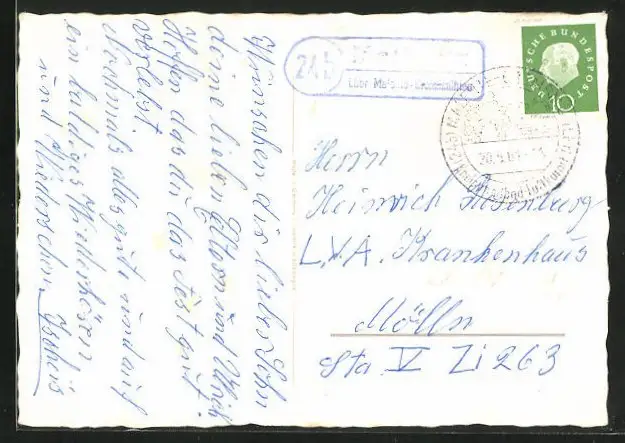 Wünschen dir lieber Sohn
deine lieben Eltern und Ulrich
Hoffen das du das Fest gut
verlebst
Nochmals alles gute und auf
ein baldiges Wiederhören
und Wiedersehen
24b
über
DEUTSCHE BUNDESPOST
10
20.5.61
Herrn
Heinrich
L.V.A. Krankenhaus
Mölln
Sta V Zi 263